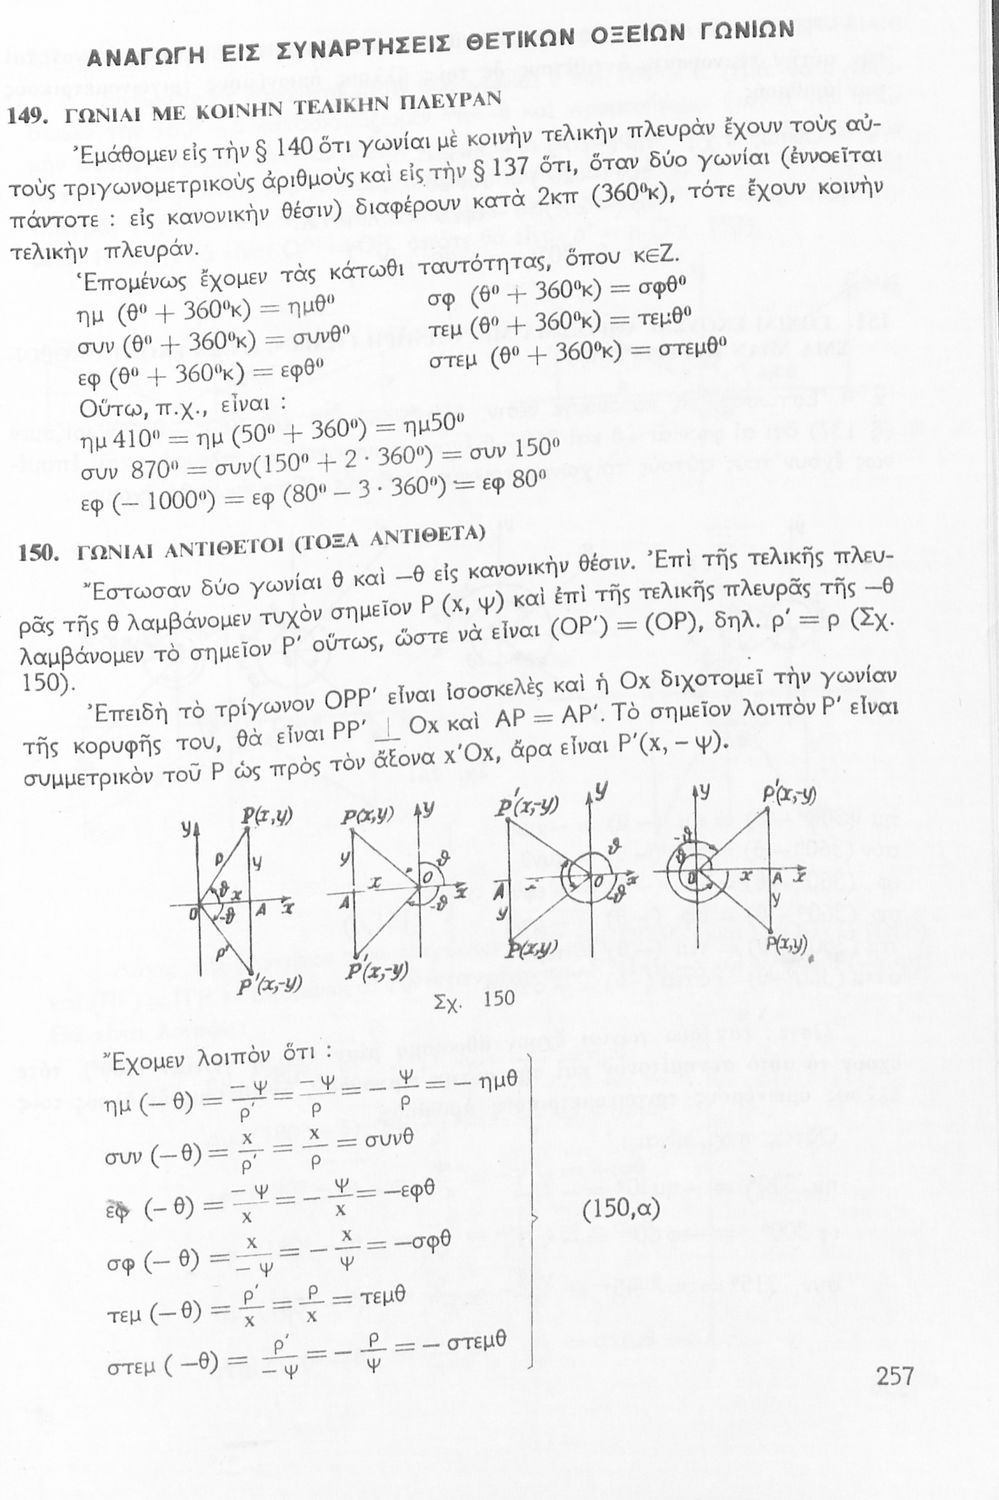 ΑΝΑΓΩΓΗ ΕΙΣ ΣΥΝΑΡΤΗΣΕΙΣ ΘΕΤΙΚΩΝ ΟΞΕΙΩΝ ΓΩΝΙΩΝ
149. ΓΩΝΙΑΙ ΜΕ ΚΟΙΝΗΝ ΤΕΛΙΚΗΝ ΠΛΕΥΡΑΝ
Ἐμάθομεν εἰς τὴν § 140 ὅτι γωνίαι μὲ κοινὴν τελικὴν πλευρὰν ἔχουν τοὺς αὐ-
τοὺς τριγωνομετρικοὺς ἀριθμοὺς καὶ εἰς τὴν § 137 ὅτι, ὅταν δύο γωνίαι (ἐννοεῖται
πάντοτε : εἰς κανονικὴν θέσιν) διαφέρουν κατὰ 2κπ (360⁰κ), τότε ἔχουν κοινὴν
τελικὴν πλευράν.
Ἑπομένως ἔχομεν τὰς κάτωθι ταυτότητας, ὅπου κ∈Ζ.
ημ (θ⁰ + 360⁰κ) = ημθ⁰ σφ (θ⁰ + 360⁰κ) = σφθ⁰
συν (θ⁰ + 360⁰κ) = συνθ⁰ τεμ (θ⁰ + 360⁰κ) = τεμθ⁰
εφ (θ⁰ + 360⁰κ) = εφθ⁰ στεμ (θ⁰ + 360⁰κ) = στεμθ⁰
Οὕτω, π.χ., εἶναι :
ημ 410⁰ = ημ (50⁰ + 360⁰) = ημ50⁰
συν 870⁰ = συν(150⁰ + 2 · 360⁰) = συν 150⁰
εφ (— 1000⁰) = εφ (80⁰ — 3 · 360⁰) = εφ 80⁰
150. ΓΩΝΙΑΙ ΑΝΤΙΘΕΤΟΙ (ΤΟΞΑ ΑΝΤΙΘΕΤΑ)
Ἔστωσαν δύο γωνίαι θ καὶ —θ εἰς κανονικὴν θέσιν. Ἐπὶ τῆς τελικῆς πλευ-
ρᾶς τῆς θ λαμβάνομεν τυχὸν σημεῖον P (x, ψ) καὶ ἐπὶ τῆς τελικῆς πλευρᾶς τῆς —θ
λαμβάνομεν τὸ σημεῖον P' οὕτως, ὥστε νὰ εἶναι (OP') = (OP), δηλ. ρ' = ρ (Σχ.
150).
Ἐπειδὴ τὸ τρίγωνον OPP' εἶναι ἰσοσκελὲς καὶ ἡ Οx διχοτομεῖ τὴν γωνίαν
τῆς κορυφῆς του, θὰ εἶναι PP' ⊥ Οx καὶ AP = AP'. Τὸ σημεῖον λοιπὸν P' εἶναι
συμμετρικὸν τοῦ P ὡς πρὸς τὸν ἄξονα x'Ox, ἄρα εἶναι P'(x, - ψ).
y P(x,y) ρ y ϑ x O -ϑ A x ρ' P'(x,-y)
P(x,y) y y ϑ x O A -ϑ x P'(x,-y)
P'(x,-y) y ϑ A O x -ϑ y P(x,y)
y P'(x,-y) -ϑ ϑ O x A x y P(x,y)
Σχ. 150
Ἔχομεν λοιπὸν ὅτι :
ημ (— θ) = — ψ / ρ' = — ψ / ρ = — ψ / ρ = — ημθ
συν (—θ) = x / ρ' = x / ρ = συνθ
εφ (— θ) = — ψ / x = — ψ / x = —εφθ
(150,α)
σφ (— θ) = x / — ψ = — x / ψ = —σφθ
τεμ (—θ) = ρ' / x = ρ / x = τεμθ
στεμ ( —θ) = ρ' / — ψ = — ρ / ψ = — στεμθ
257